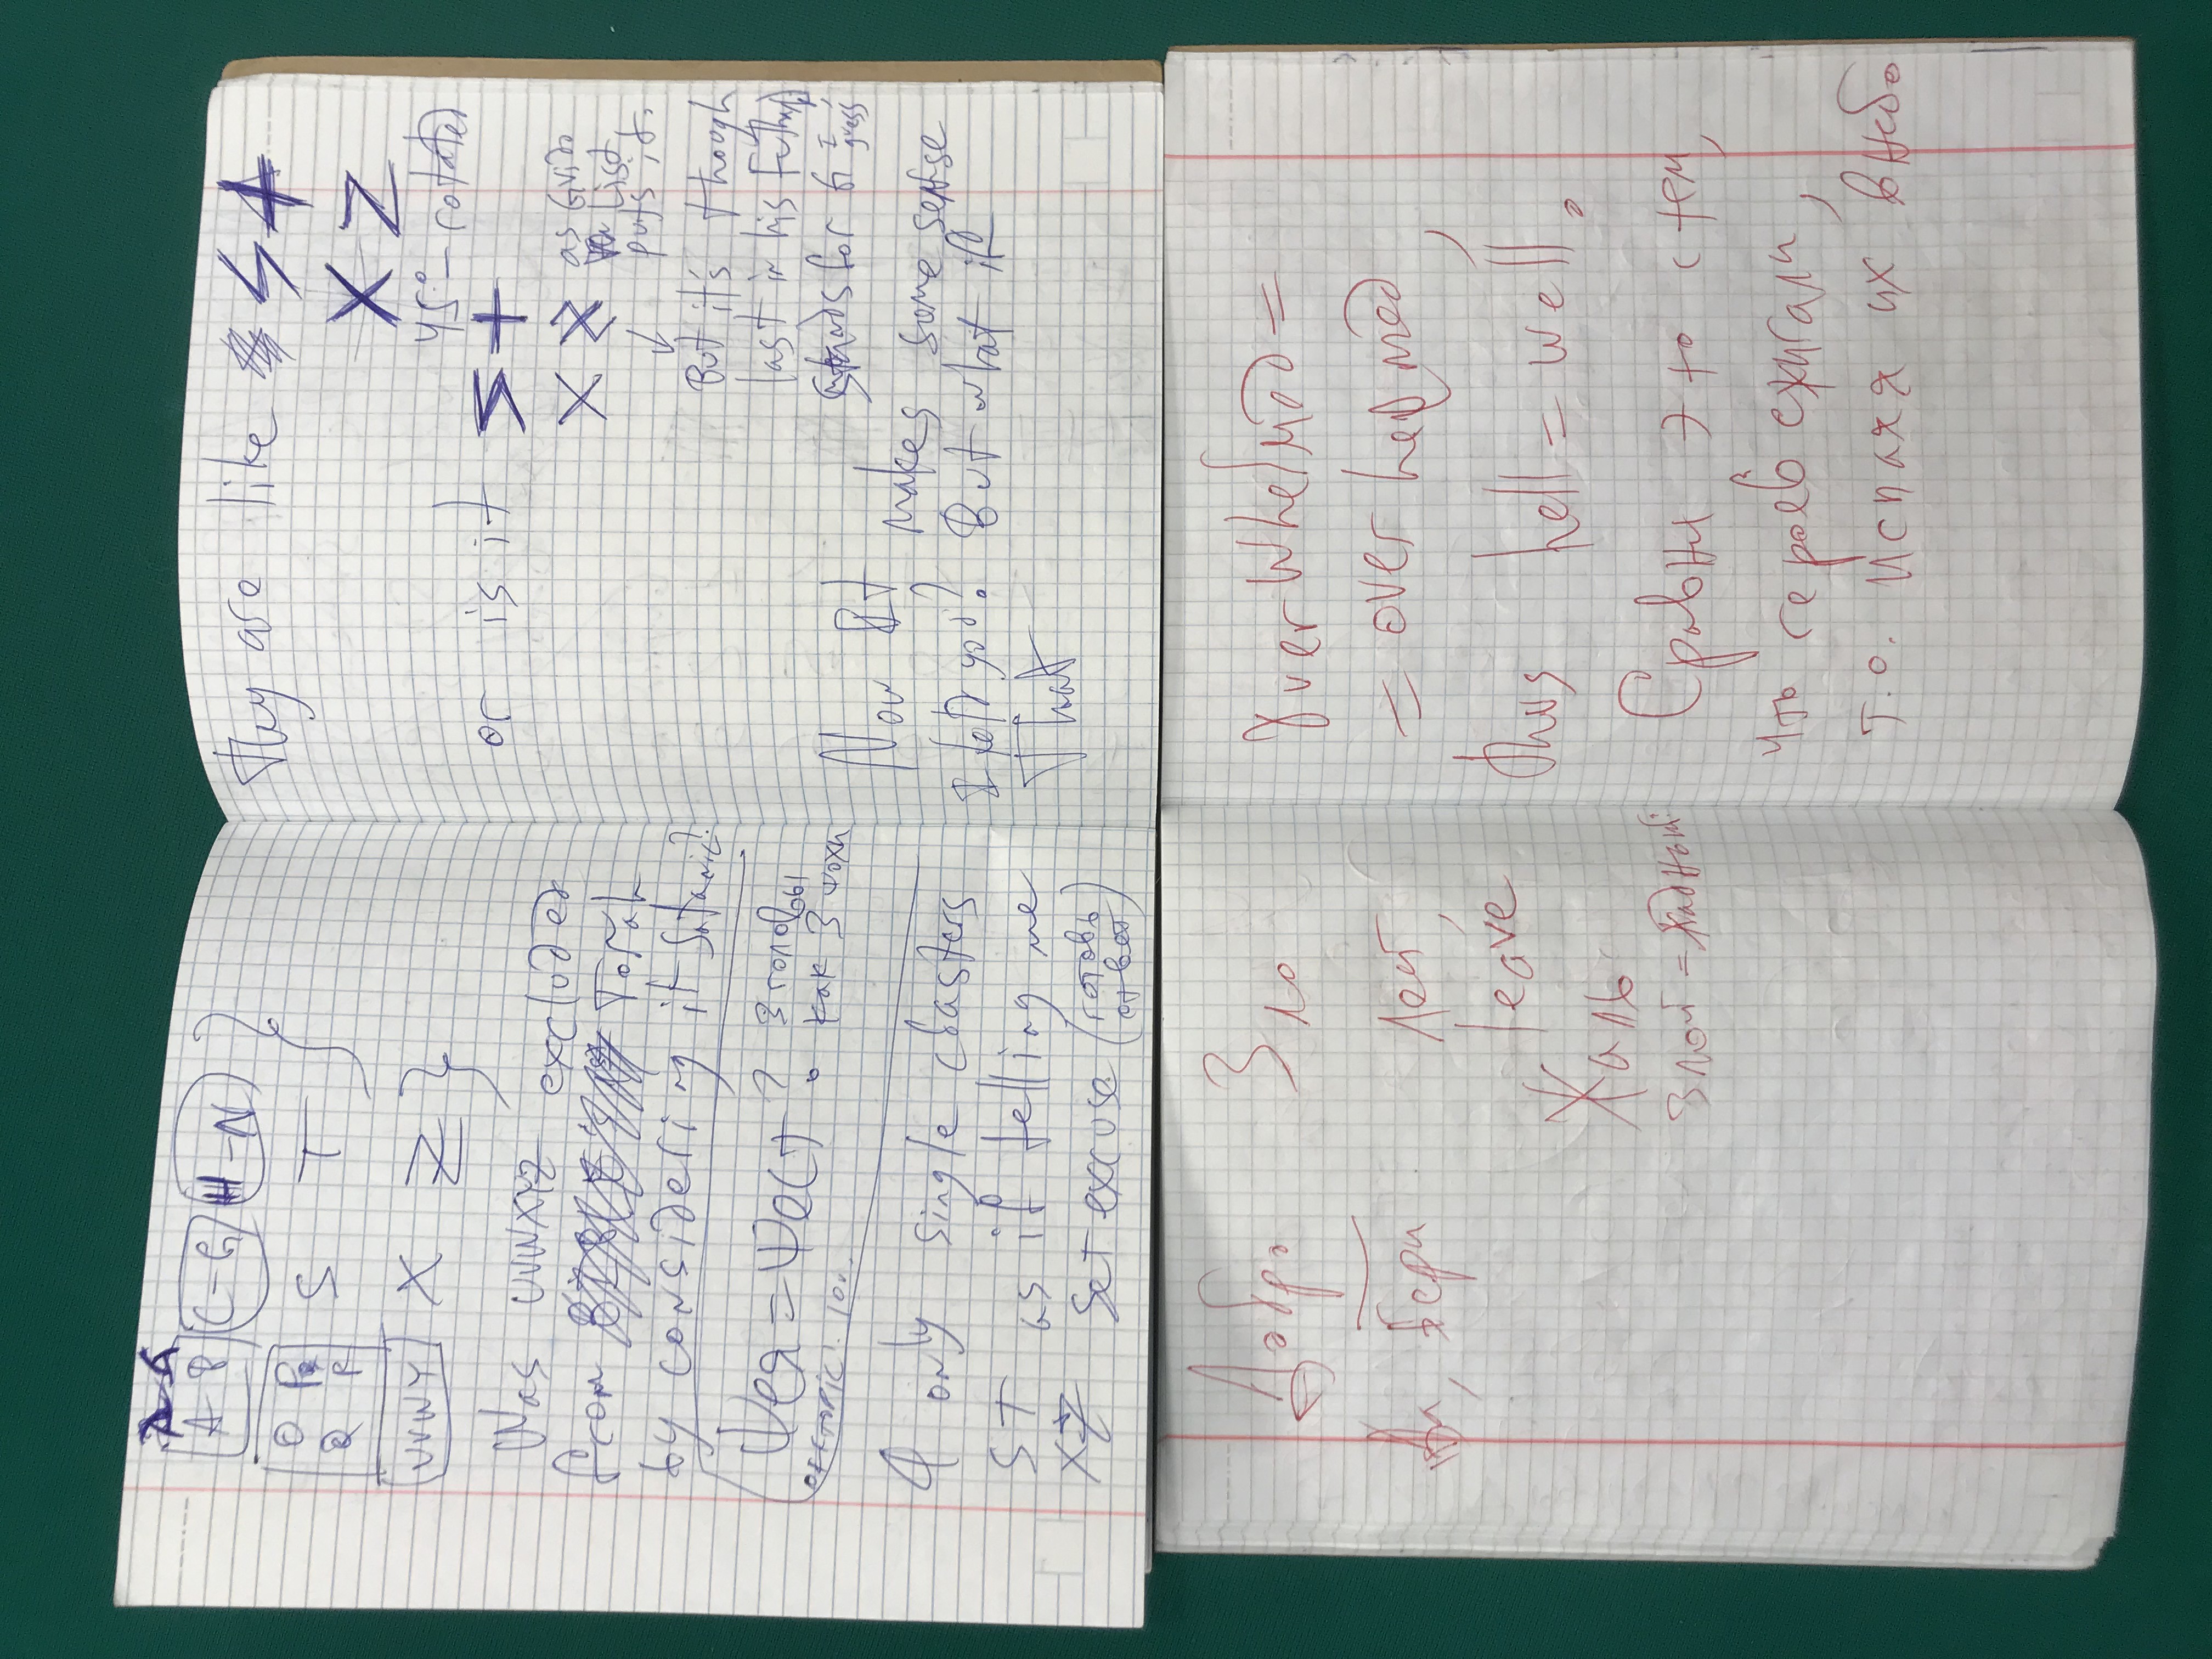 A-B C-G H-N }
O P
Q R S T }
UVWY X Z }
Was UVWXYZ excluded
from Torah
by considering it Satanic?
Ψея = Ψест ? 3 головы
как 3
offtopic:
4 only single clasters
ST as if telling me
XZ Set excuse (готовь
ответ)
They are like S +
X Z
45°-rotated
or is it S +
X Z as Guido
List
puts it.
↓
But it's though
last in his Futhark
stands for G I
guess
Now It makes some sense
I told you? But what if
That
Добро Зло
Да, бери Лей,
leave
Жаль
Злой = жадный
OverWhelmed =
= over helmed,
thus hell = well.
Сравни это с тем,
что героев сжигали,
т.о. испаряя их в небо